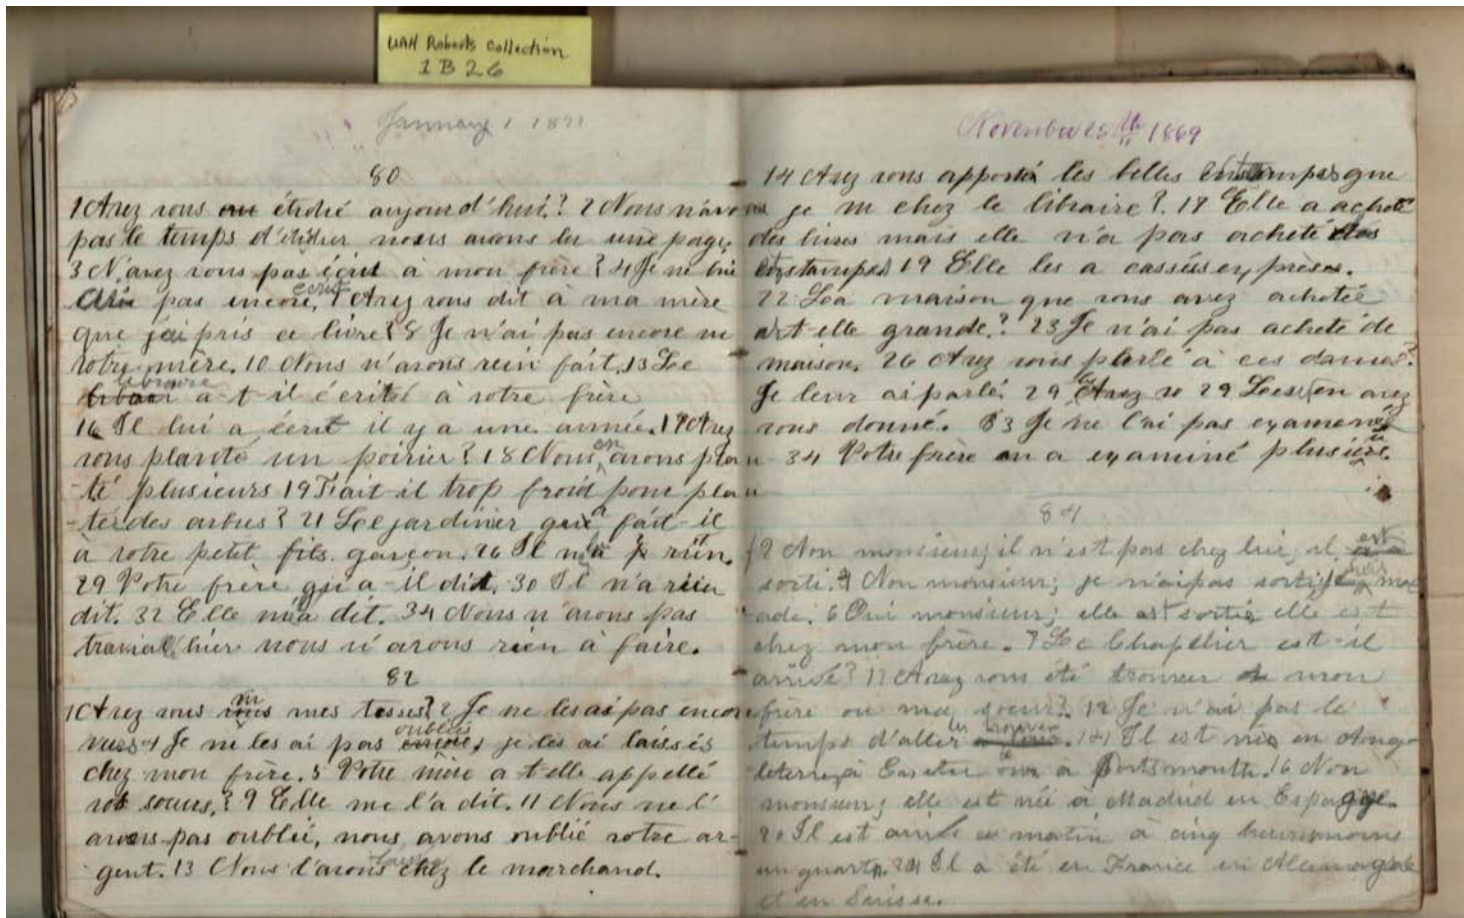 UAH Roberts Collection
1 B 26
January 1 18
80
1 Avez vous étudié aujourd'hui? 2 Nous n'avons
pas le temps d'étidier nous avons lu une page.
3 N'avez vous pas écrit à mon frère? 4 Je ne lui
ai pas encore écrit. 7 Avez vous dit à ma mère
que j'ai pris ce livre? 8 Je n'ai pas encore vu
votre mère. 10 Nous n'avons rien fait. 13 Le
libraire a-t-il écrit à votre frère
16 Il lui a écrit il y a une année. 17 Avez
vous planté un poirier? 18 Nous en avons plan
-té plusieurs 19 Fait-il trop froid pour plan
-ter des arbres? 21 Le jardinier qu'a fait-il
à votre petit fils garçon. 26 Il rien.
29 Votre frère qu'a-il dit. 30 Il n'a rien
dit. 32 Elle m'a dit. 34 Nous n'avons pas
travail hier nous n'avons rien à faire.
82
1 Avez vous vu mes tasses? 2 Je ne les ai pas encore
vues 4 Je ne les ai pas oubliés je les ai laissés
chez mon frère. 5 Votre mère a t elle appellé
vos soeurs? 9 Elle me l'a dit. 11 Nous ne l'
avons pas oublié, nous avons oublié votre ar-
gent. 13 Nous l'avons laissé chez le marchand.
November 25th 1869
14 Avez vous apporté les belles estampes que
je vu chez le libraire? 17 Elle a acheté
des livres mais elle n'a pas acheté des
estampes 19 Elle les a cassés exprès.
22 La maison que vous avez achetée
est-elle grande? 23 Je n'ai pas acheté de
maison. 26 Avez vous parlé à ces dames?
Je leur ai parlé. 29 Avez vo 29 Les en avez
vous donné. 33 Je ne l'ai pas examiné
34 Votre frère en a examiné plusieurs.
84
2 Non monsieur; il n'est pas chez lui, il est
sorti. 4 Non monsieur; je n'ai pas sorti je suis mal
ade. 6 Oui monsieur; elle est sortie elle est
chez mon frère. 7 Le Chapelier est-il
arrivé? 11 Avez vous été trouver mon
frère ou ma soeur? 12 Je n'ai pas le
temps d'aller les trouver. 14 Il est né en Ang-
leterre, à Exeter ou à Portsmouth. 16 Non
monsieur; elle est née à Madrid en Espagne.
20 Il est arrivé ce matin à cinq heures moins
un quart. 24 Il a été en France en Allemagne
et en Suisse.